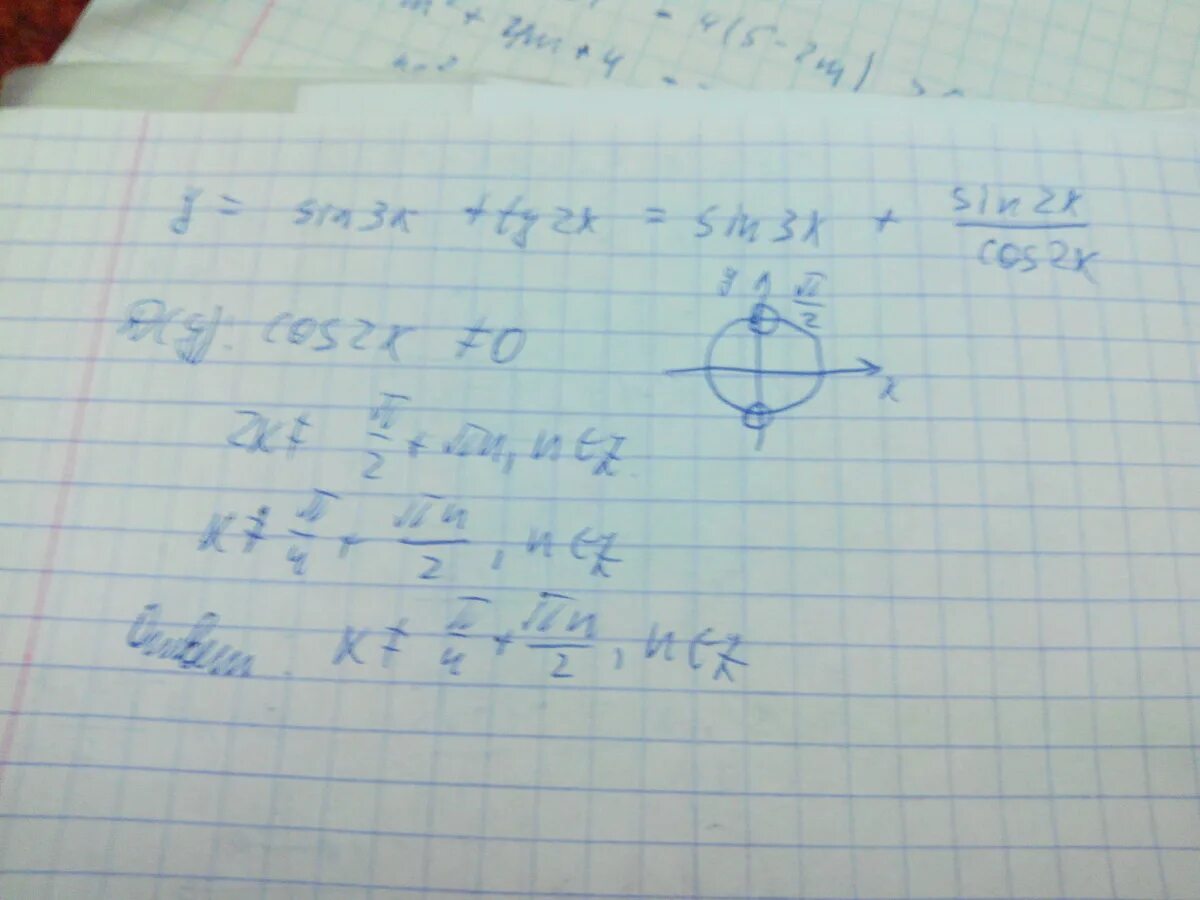 + 4m + 4 = 4(5-2m)
y = sin3x + tg2x = sin3x + sin2x/cos2x
y π/2
x
D(y): cos2x ≠ 0
2x ≠ π/2 + πn, n ∈ Z
x ≠ π/4 + πn/2, n ∈ Z
Ответ: x ≠ π/4 + πn/2, n ∈ Z